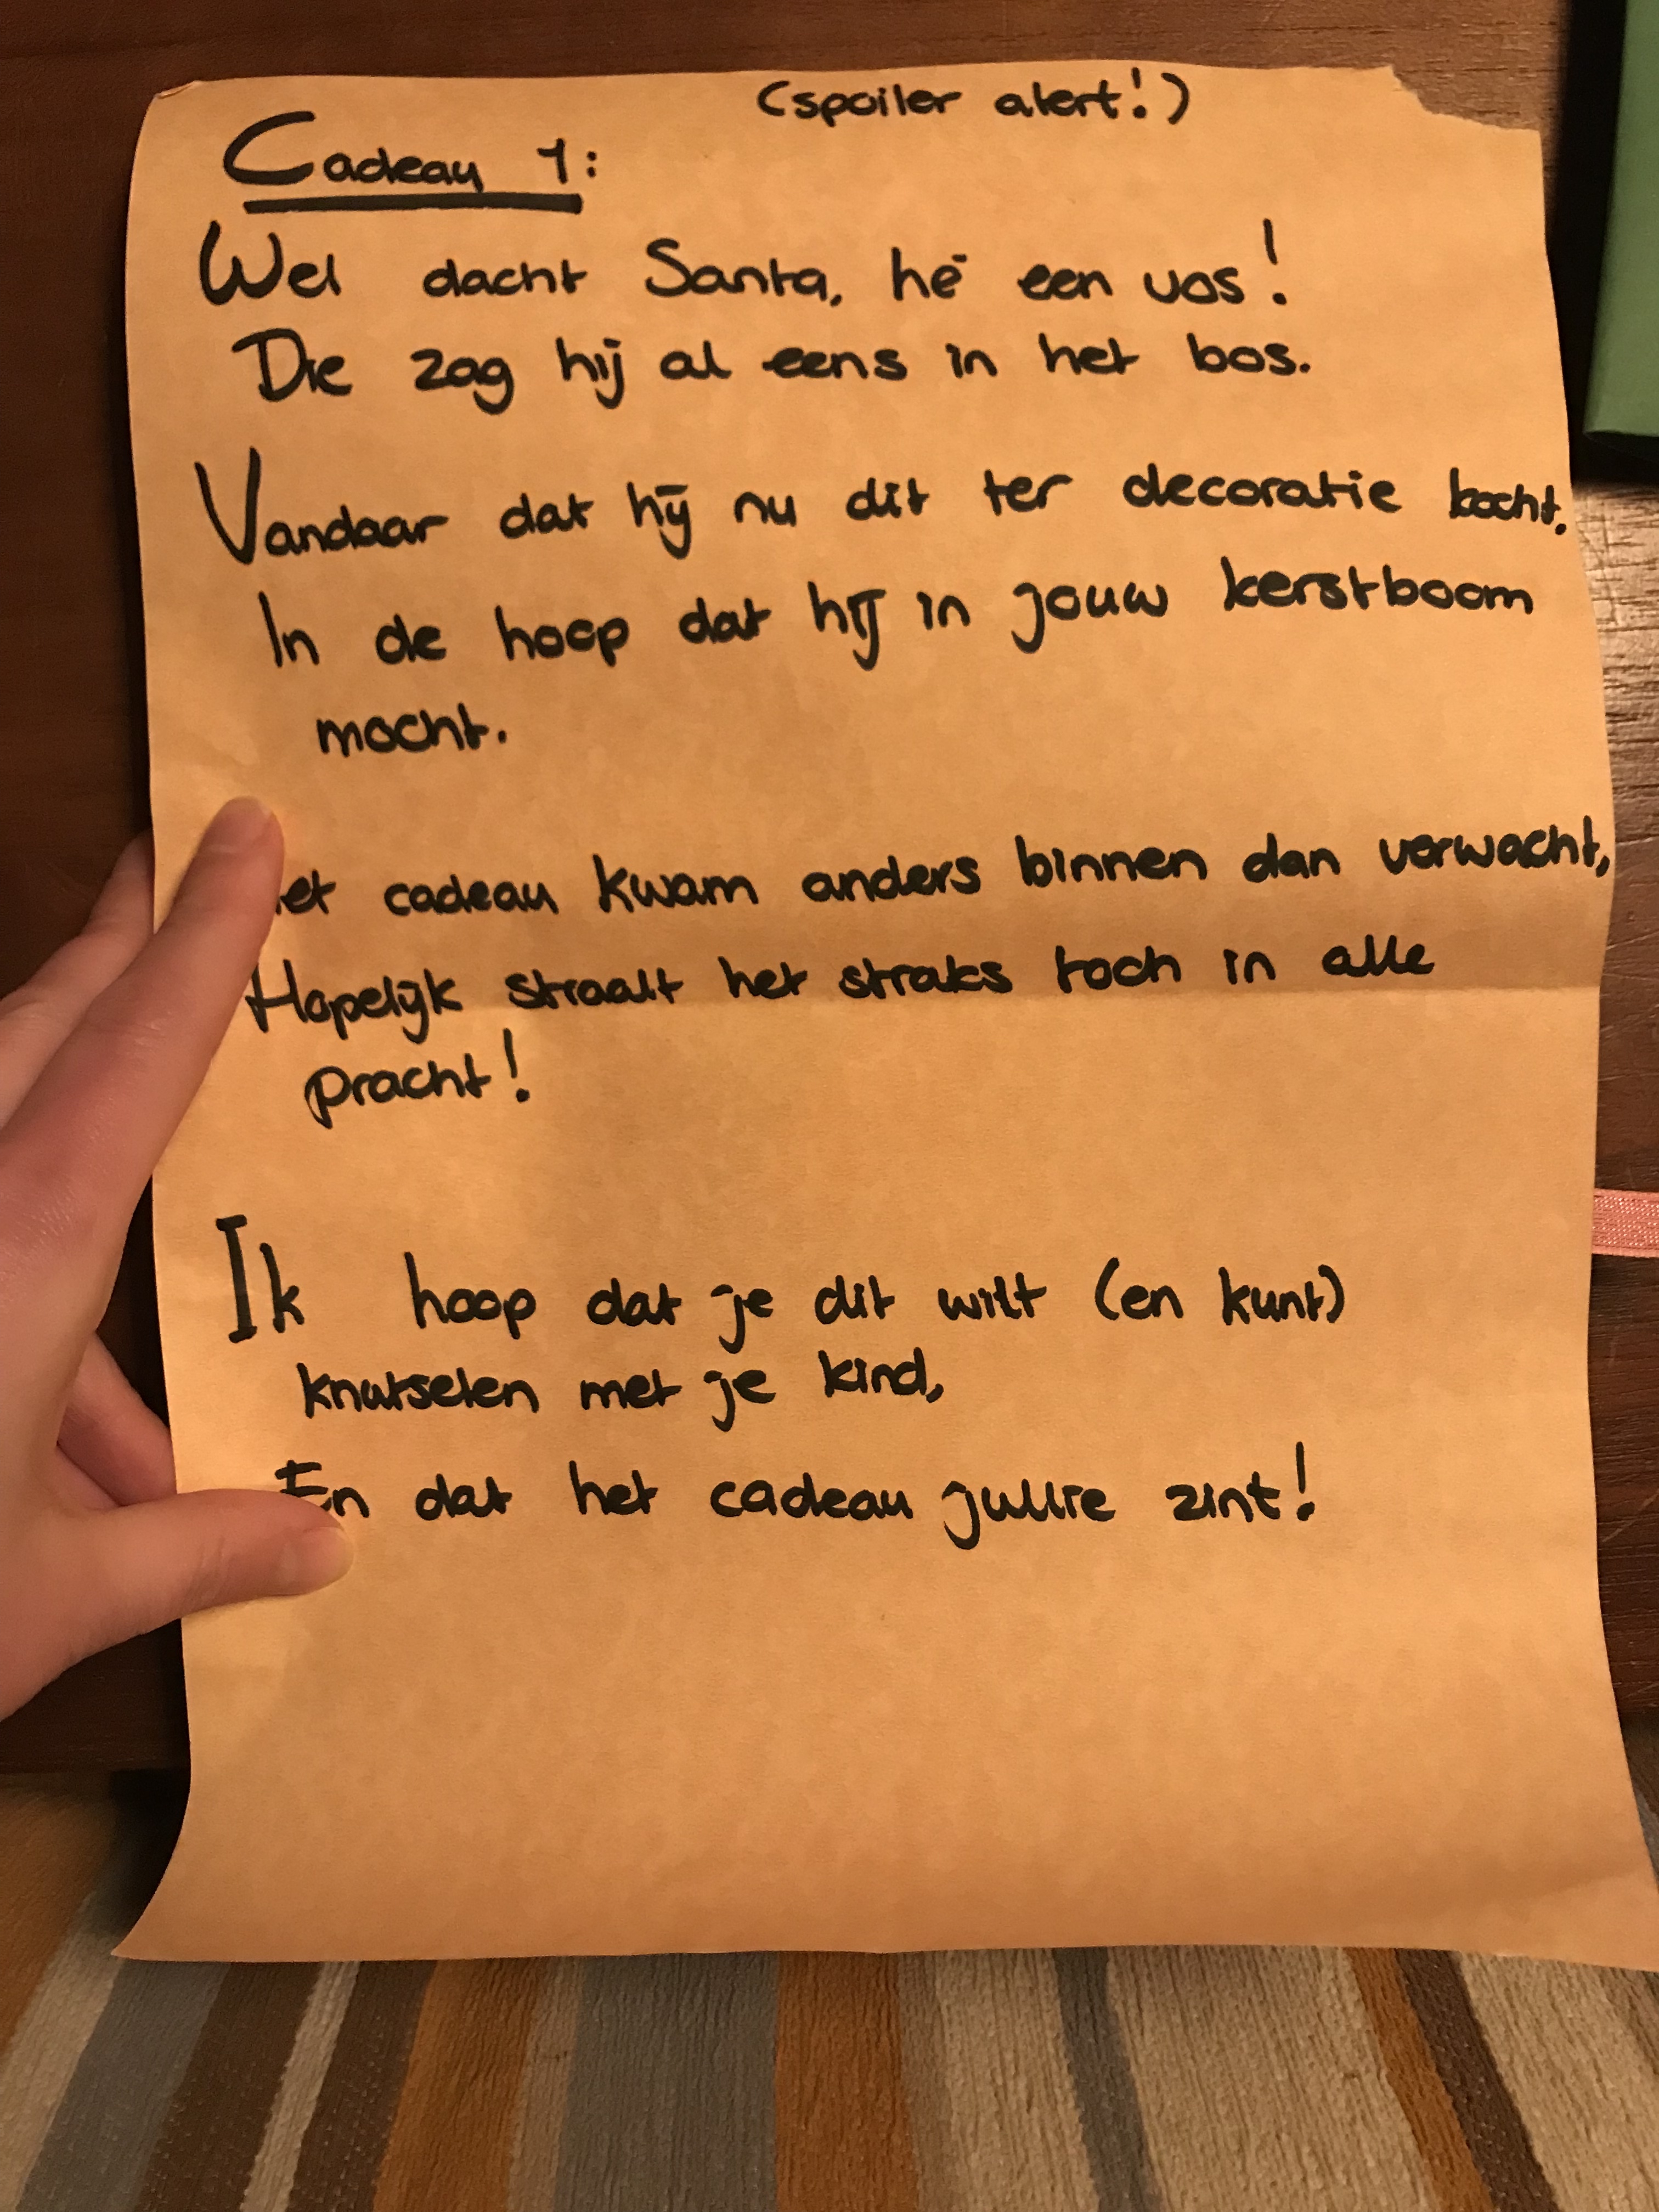 (spoiler alert!)
Cadeau 1:
Wel dacht Santa, hé een vos!
Die zag hij al eens in het bos.
Vandaar dat hij nu dit ter decoratie kocht.
In de hoop dat hij in jouw kerstboom
mocht.
et cadeau kwam anders binnen dan verwacht,
Hopelijk straalt het straks toch in alle
pracht!
Ik hoop dat je dit wilt (en kunt)
knutselen met je kind,
En dat het cadeau jullie zint!